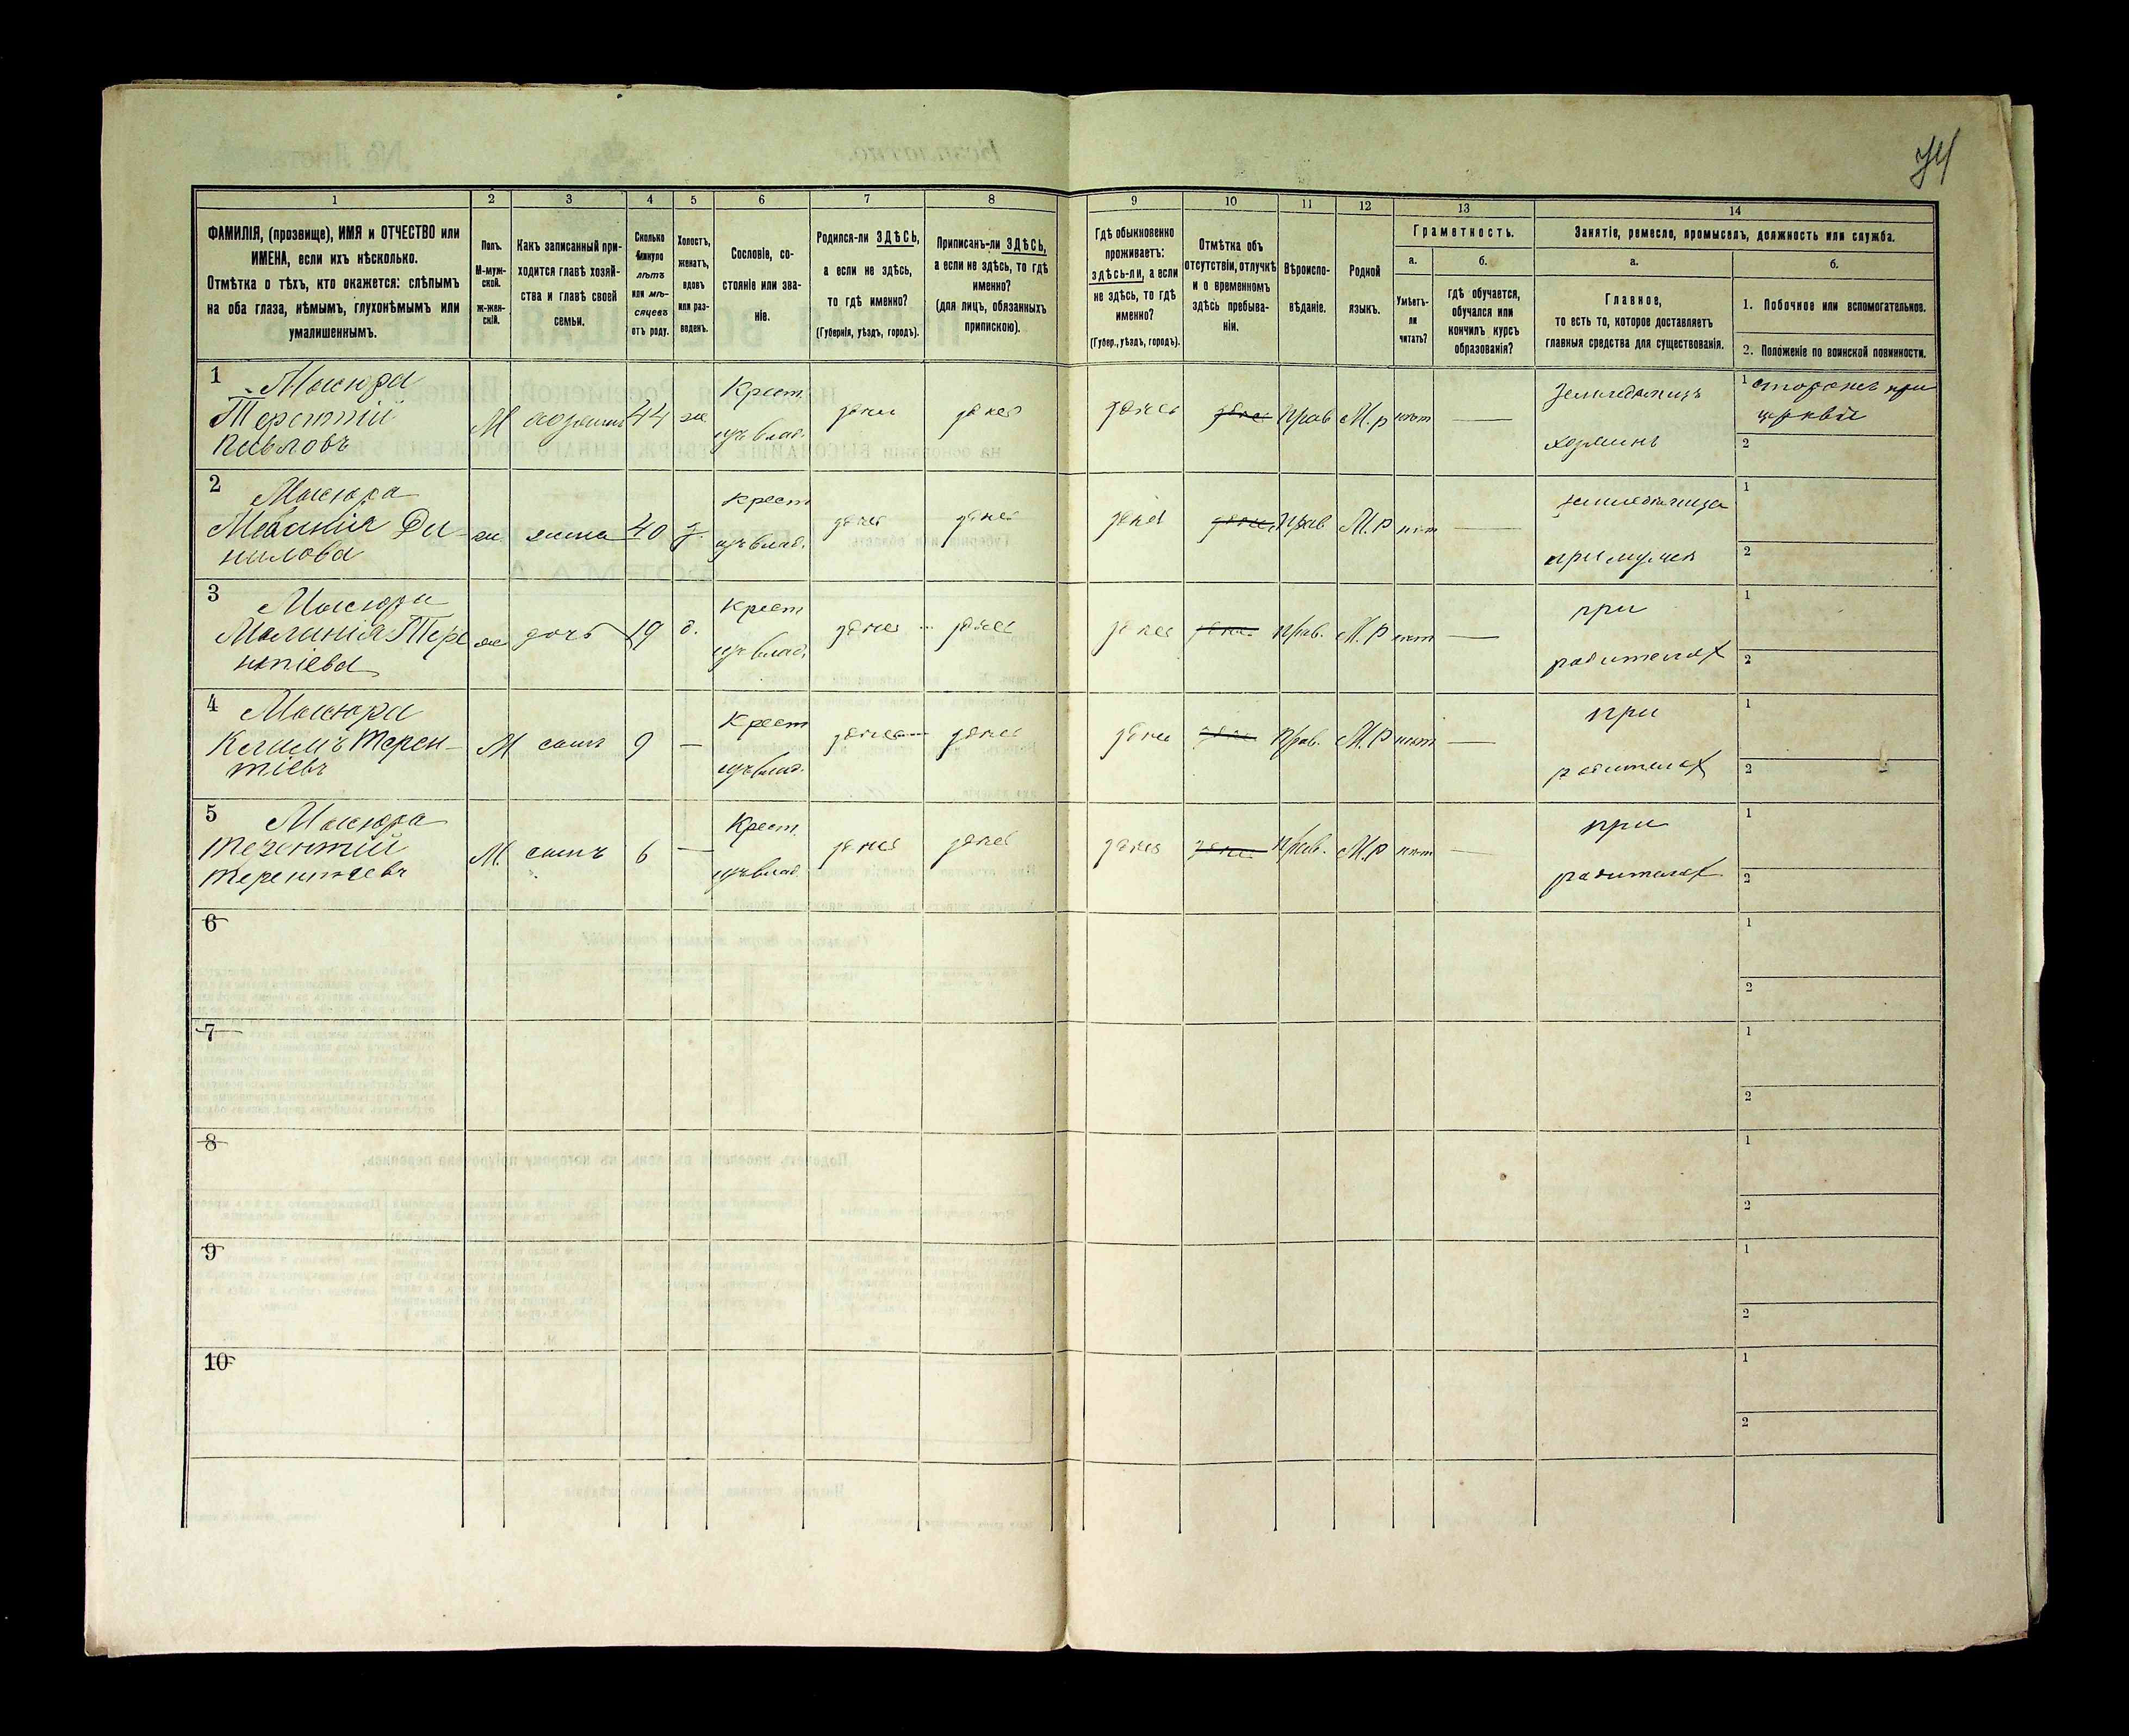 74
1 2 3 4 5 6 7 8 9 10 11 12 13 14
ФАМИЛІЯ, (прозвище), ИМЯ и ОТЧЕСТВО или
ИМЕНА, если ихъ нѣсколько.
Отмѣтка о тѣхъ, кто окажется: слѣпымъ
на оба глаза, нѣмымъ, глухонѣмымъ или
умалишеннымъ.
Полъ.
М-муж-
ской.
ж-жен-
скій.
Какъ записанный при-
ходится главѣ хозяй-
ства и главѣ своей
семьи.
Сколько
минуло
лѣтъ
или мѣ-
сяцевъ
отъ роду.
Холостъ,
женатъ,
вдовъ
или раз-
веденъ.
Сословіе, со-
стояніе или зва-
ніе.
Родился-ли ЗДѢСЬ,
а если не здѣсь,
то гдѣ именно?
(Губернія, уѣздъ, городъ).
Приписанъ-ли ЗДѢСЬ,
а если не здѣсь, то гдѣ
именно?
(для лицъ, обязанныхъ
припискою).
Гдѣ обыкновенно
проживаетъ:
здѣсь-ли, а если
не здѣсь, то гдѣ
именно?
(Губер., уѣздъ, городъ).
Отмѣтка объ
отсутствіи, отлучкѣ
и о временномъ
здѣсь пребыва-
ніи.
Вѣроиспо-
вѣданіе.
Родной
языкъ.
Грамотность.
а.
Умѣетъ-
ли
читать?
б.
гдѣ обучается,
обучался или
кончилъ курсъ
образованія?
Занятіе, ремесло, промыселъ, должность или служба.
а.
Главное,
то есть то, которое доставляетъ
главныя средства для существованія.
б.
1. Побочное или вспомогательное.
2. Положеніе по воинской повинности.
1
Терентій
Павловъ
М хозяинъ 44 ж
Крест
изъ влад.
здѣсь здѣсь здѣсь здѣсь Прав М.р нѣт —
Земледѣлецъ
хозяинъ
1 сторожъ при
церкви
2
2
Меланія Да-
нилова
ж. жена 40 з.
Крест
изъ влад.
здѣсь здѣсь здѣсь здѣсь Прав М.р нѣт —
земледѣлица
при мужѣ
1
2
3
Меланія Тере
нтіева
ж дочь 19 д.
Крест
изъ влад.
здѣсь здѣсь здѣсь здѣсь Прав. М.р нѣт —
при
родителях
1
2
4
Терен-
тіевъ
М сынъ 9 —
Крест
изъ влад.
здѣсь здѣсь здѣсь здѣсь Прав. М.р нѣт —
при
родителях
1
2
5
Терентій
Терентіевъ
М. сынъ 6 —
Крест.
изъ влад.
здѣсь здѣсь здѣсь здѣсь Прав. М.р нѣт —
при
родителях
1
2
6
1
2
7
1
2
8
1
2
9
1
2
10
1
2